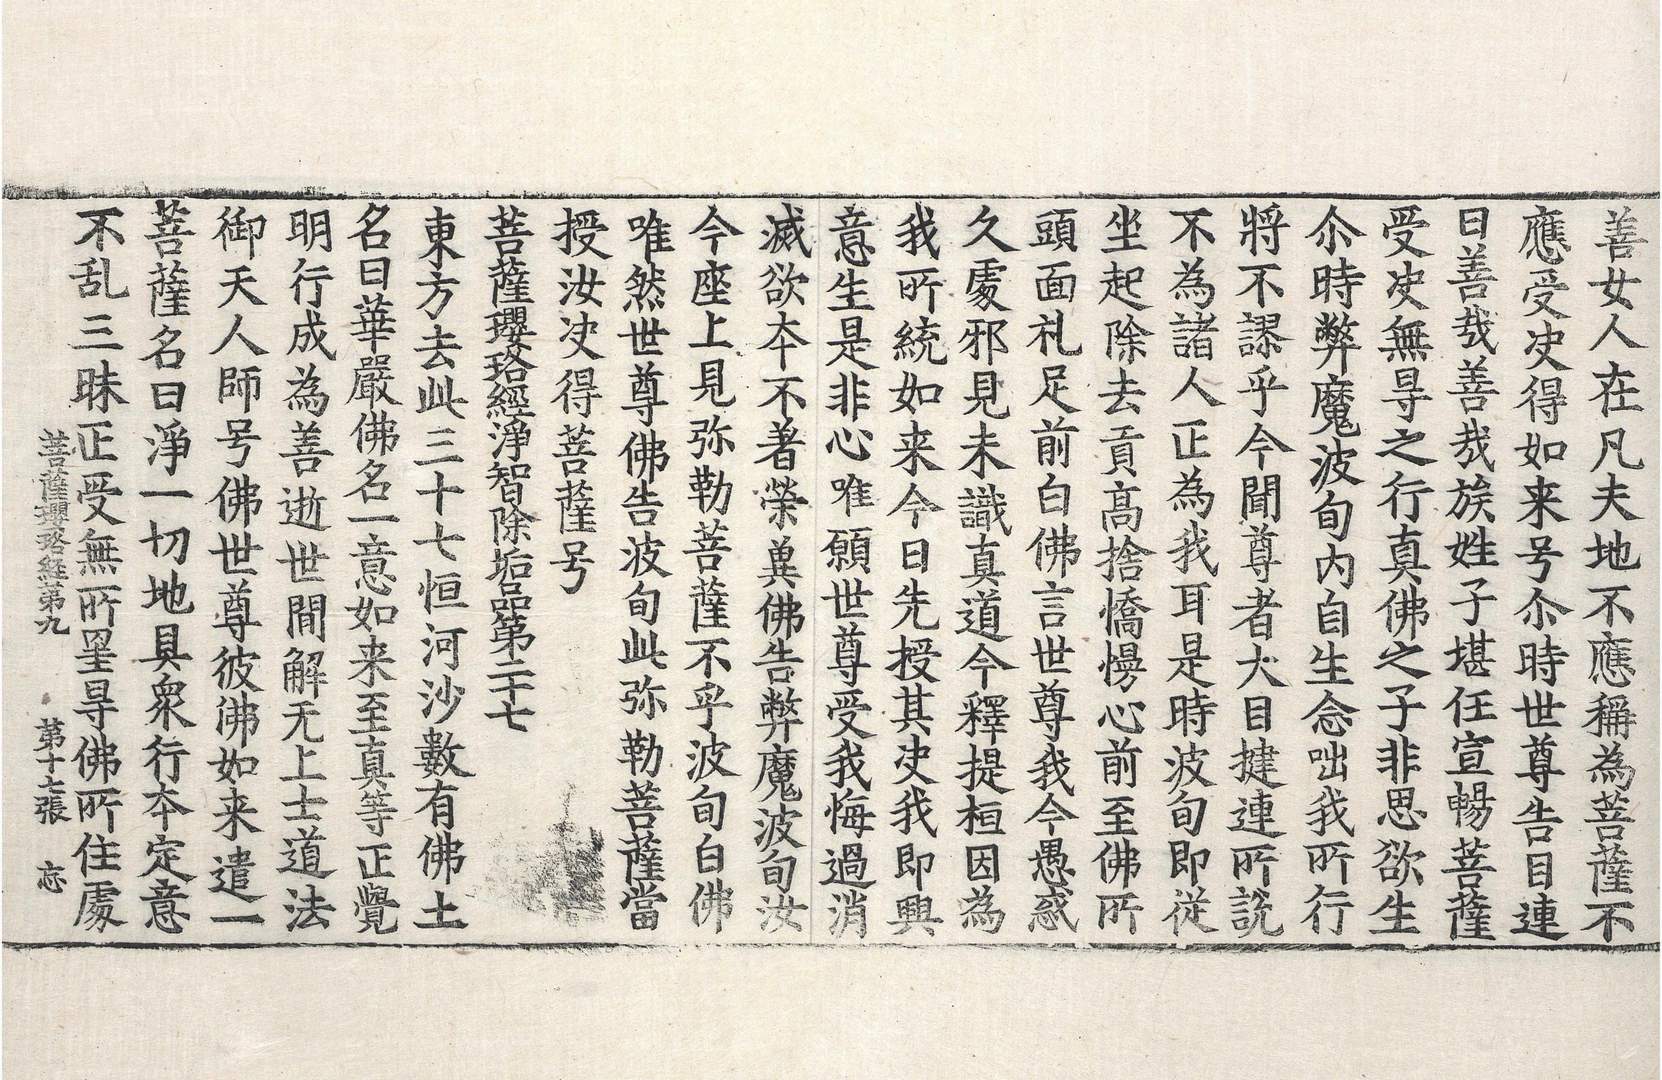 善女人在凡夫地不應稱為菩薩不
應受决得如来号尒時世尊告目連
曰善㢤善㢤族姓子堪任宣暢菩薩
受决無㝵之行真佛之子非思欲生
尒時弊魔波旬内自生念咄我所行
將不謬乎今聞尊者大目揵連所説
不為諸人正為我耳是時波旬即従
坐起除去貢髙捨憍慢心前至佛所
頭面礼足前白佛言世尊我今愚惑
久處邪見未識真道今釋提桓因為
我所統如来今日先授其决我即興
意生是非心唯願世尊受我悔過消
滅欲夲不著榮兾佛告弊魔波旬汝
今座上見弥勒菩薩不乎波旬白佛
唯然世尊佛告波旬此弥勒菩薩當
授汝决得菩薩号
菩薩瓔珞經淨智除垢品第二十七
東方去此三十七恒河沙數有佛土
名曰華嚴佛名一意如来至真等正覺
明行成為善逝世間解无上士道法
御天人師号佛世尊彼佛如来遣一
菩薩名曰淨一切地具衆行夲定意
不乱三昧正受無所罣㝵佛所住處
菩薩瓔珞經第九　第十七張　忘